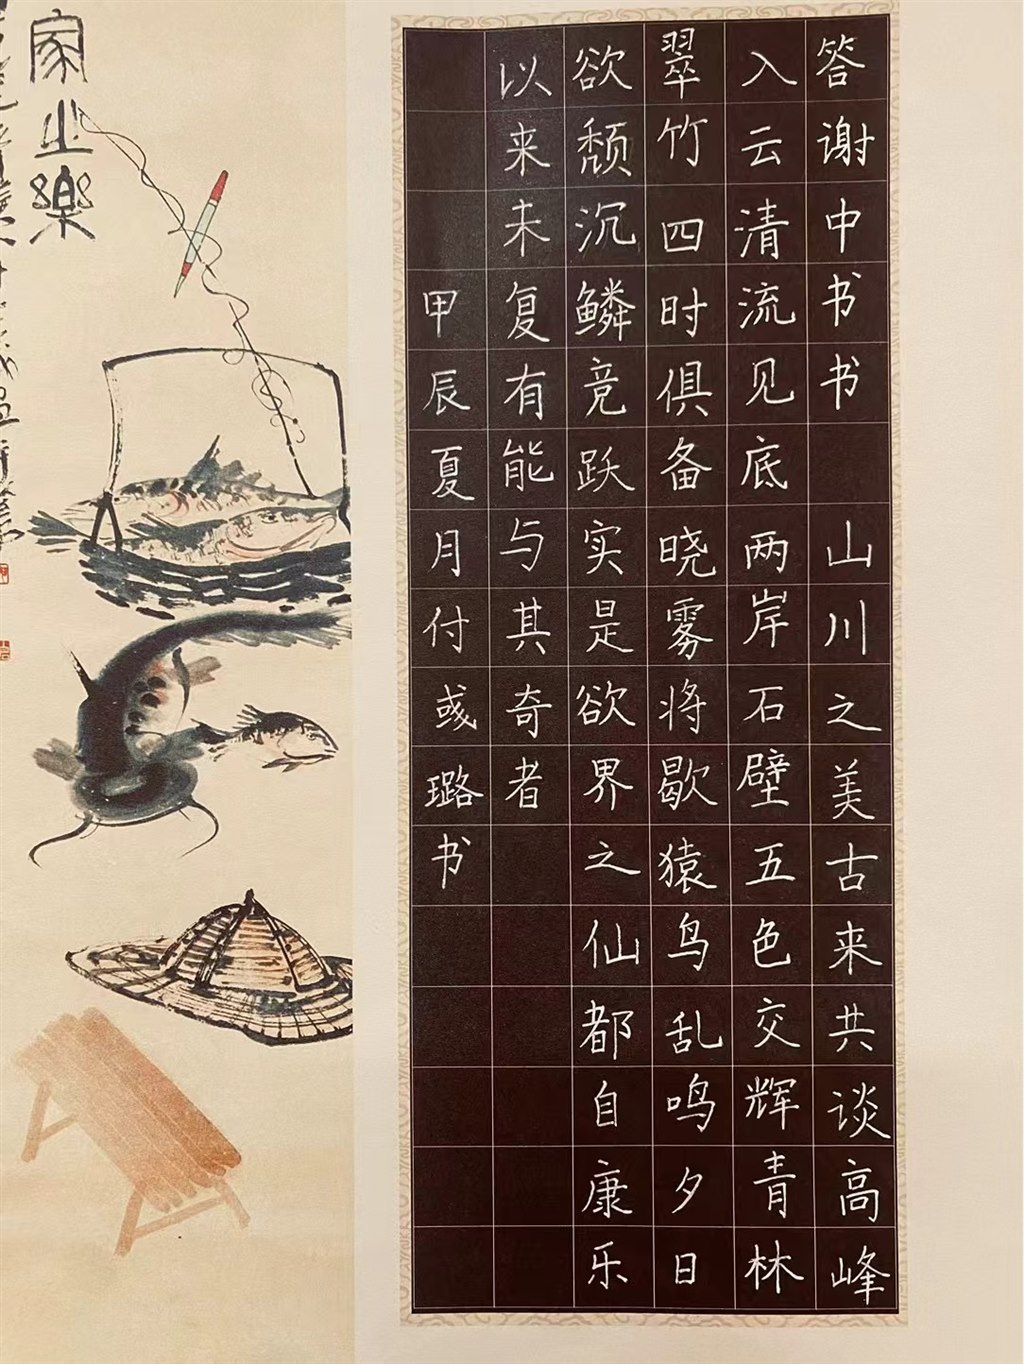 答谢中书书 山川之美古来共谈高峰
入云清流见底两岸石壁五色交辉青林
翠竹四时俱备晓雾将歇猿鸟乱鸣夕日
欲颓沉鳞竞跃实是欲界之仙都自康乐
以来未复有能与其奇者
甲辰夏月付彧璐书
家之樂